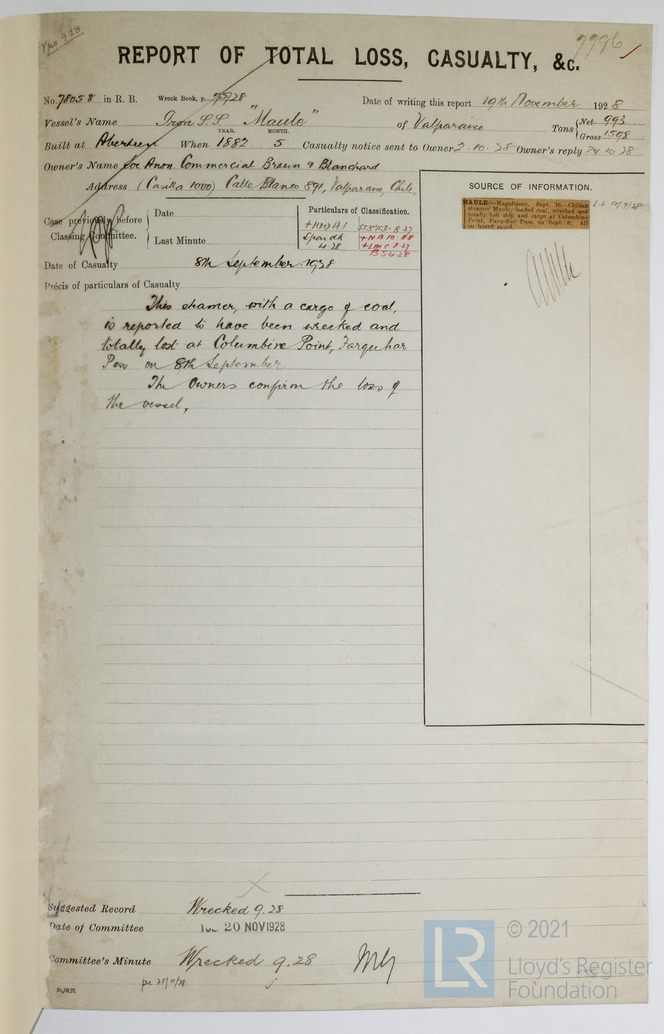 7796
REPORT OF TOTAL LOSS, CASUALTY, &c.
No. 78058 in R. B. Wreck Book, p. 75/28 Date of writing this report 19th November 1928
Vessel's Name Iron S.S. "Maule" of Valparaiso Tons { Net 993
YEAR. MONTH. Gross 1598
Built at Aberdeen When 1882. 5 Casualty notice sent to Owner 2.10.28 Owner's reply 24.10.28
Owner's Name Soc Anon Commercial Braun & Blanchard
Address (Casilla 1000) Calle Blanco 891, Valparaiso, Chile.
SOURCE OF INFORMATION.
MAULE.—Magallanes, Sept. 10.—Chilian
steamer Maule, loaded coal, wrecked and
totally lost ship and cargo at Columbine
Point, Farquhar Pass, on Sept. 8. All
on board saved.
Case previously before
Classing Committee.
Date
Last Minute
Particulars of Classification.
+100A1
4.28
+NB 10.88
+LMC 8.27
BS 4.28
Date of Casualty 8th September 1928
Précis of particulars of Casualty
This steamer, with a cargo of coal,
is reported to have been wrecked and
totally lost at Columbine Point, Farquhar
Pass on 8th September
The Owners confirm the loss of
the vessel.
Suggested Record Wrecked 9.28
Date of Committee TUE. 20 NOV 1928
Committee's Minute Wrecked 9.28
© 2021
LR
Lloyd's Register
Foundation